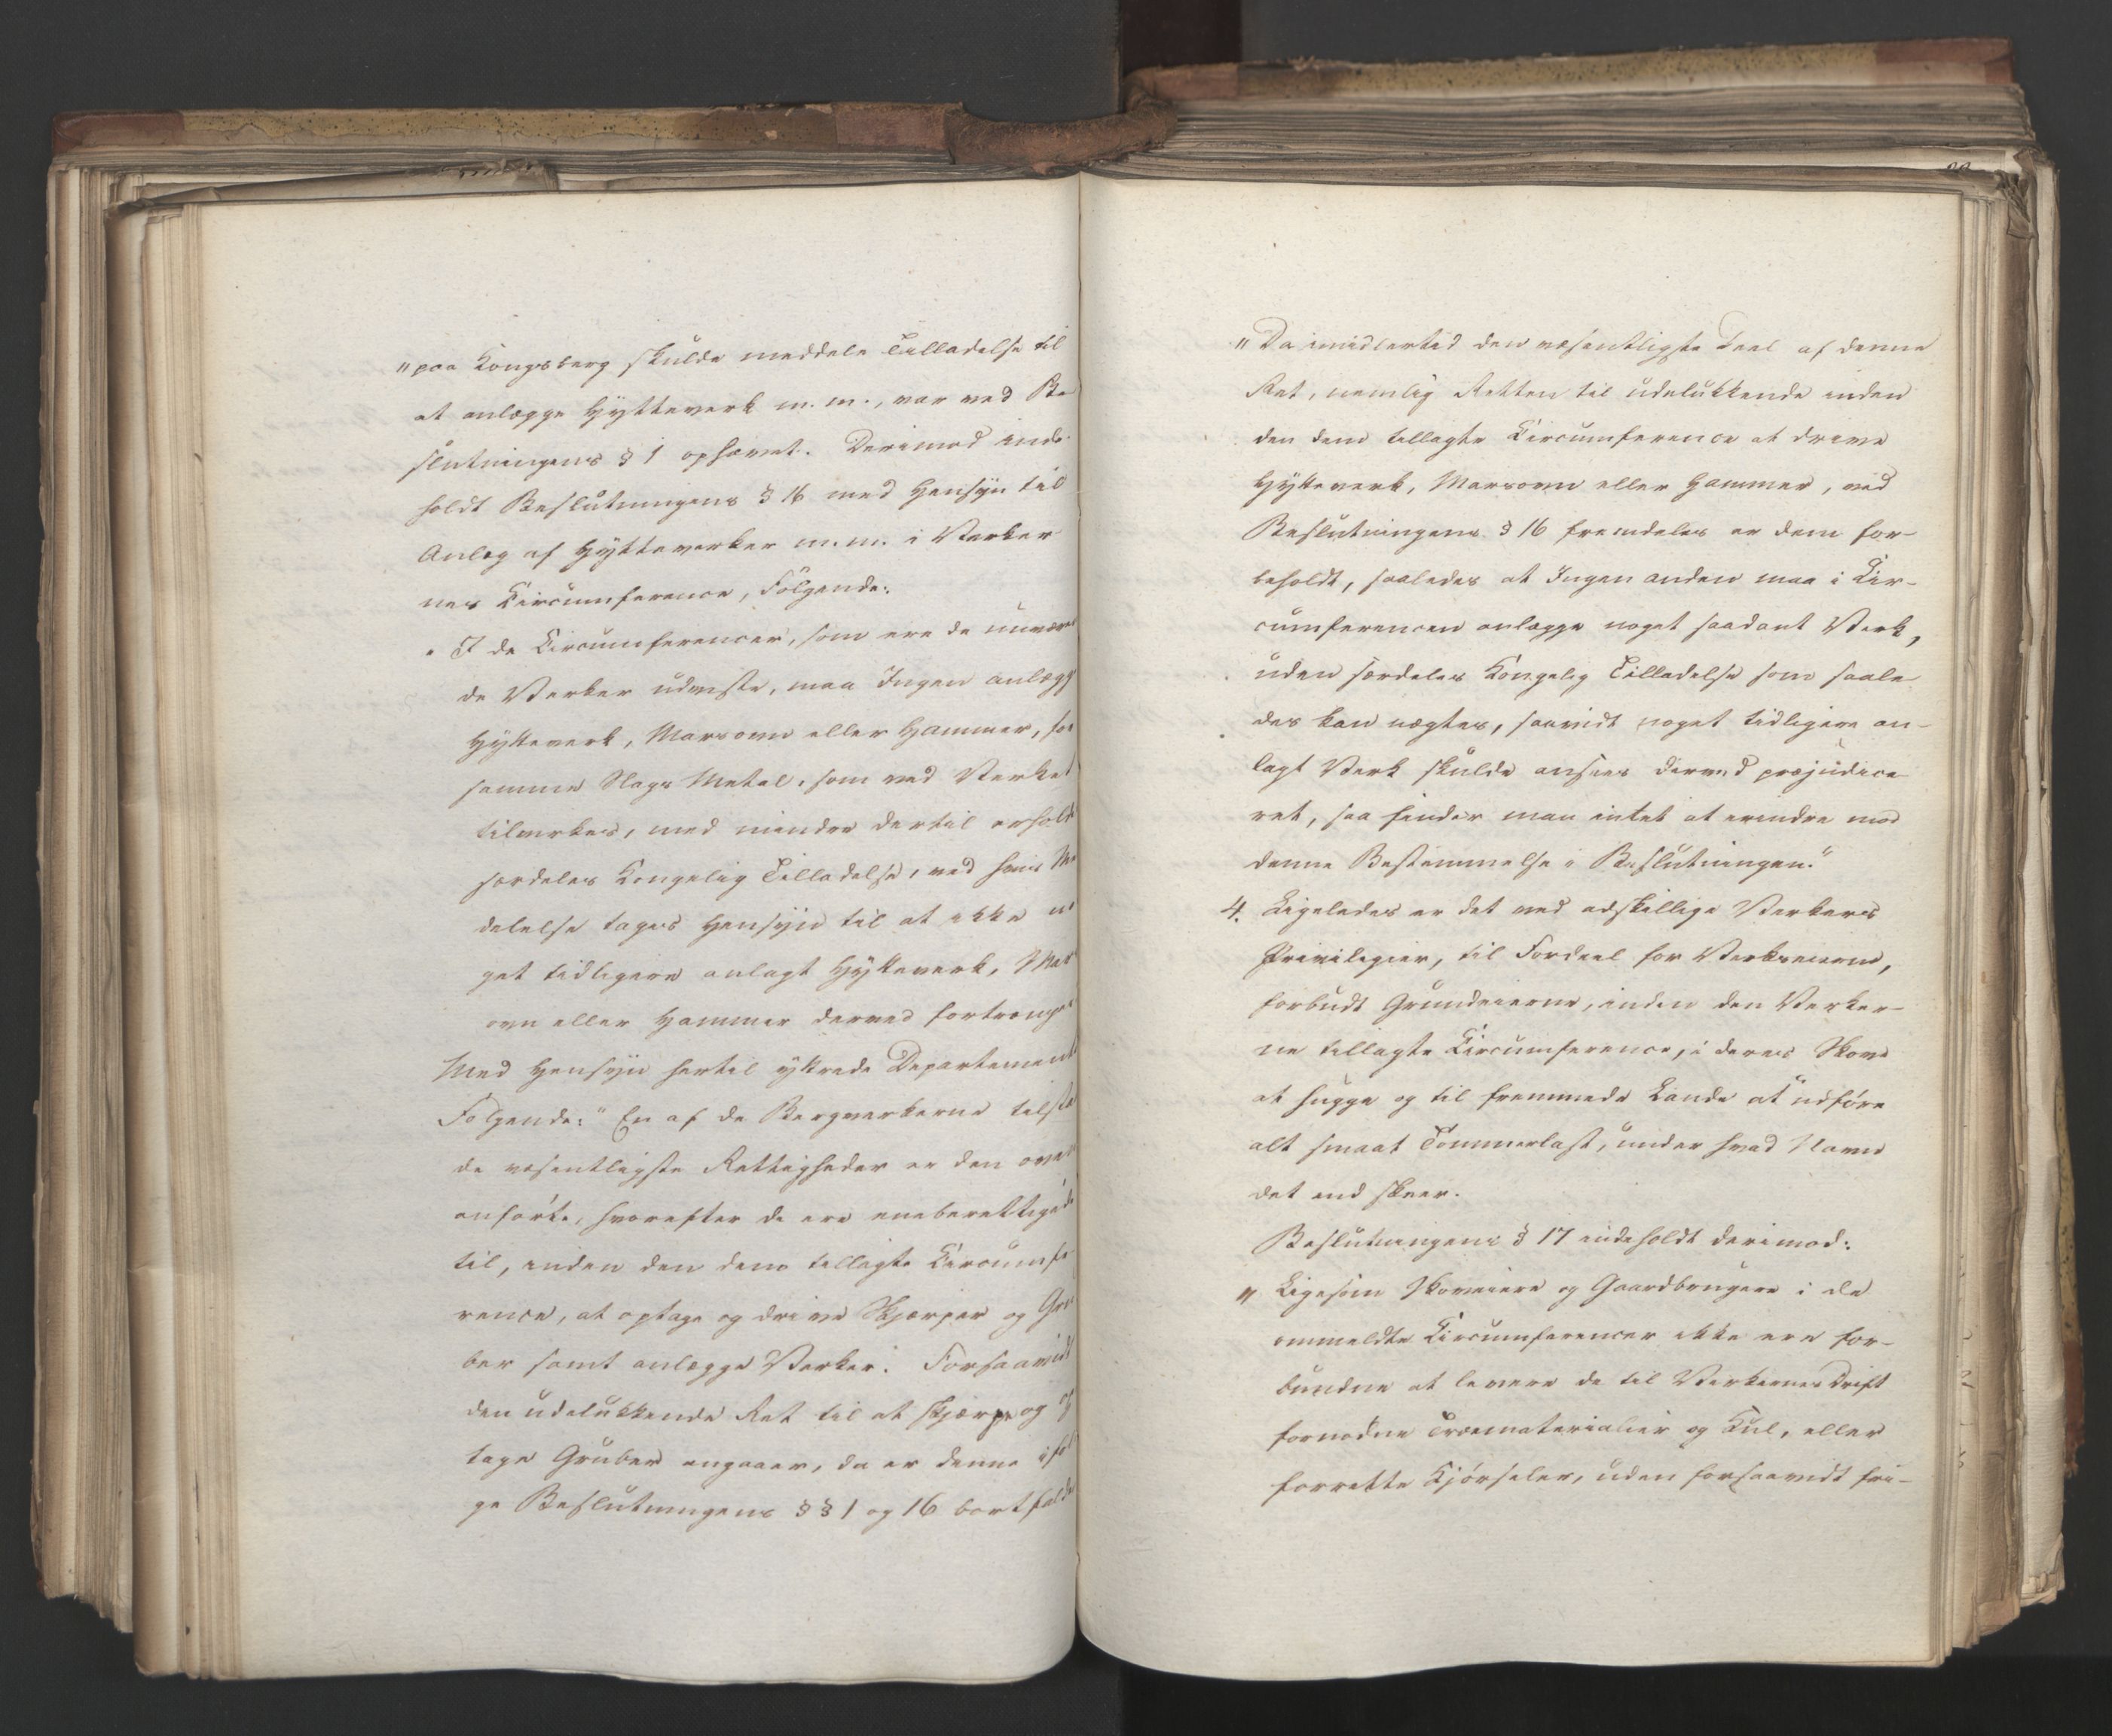 "paa Kongsberg skulde meddele Tilladelse til
at anlægge Hytteverk m. m., var ved Be
slutningens § 1 ophævet. Derimod inde
holdt Beslutningens § 16 med Hensyn til
Anlæg af Hytteverker m. m. i Verker
nes Circumference, Følgende:
" I de Circumferencer, som ere de nuværen
de Verker udviste, maa Ingen anlægge
Hytteverk, Marsovn eller Hammer, for
samme Slags Metal, som ved Verket
tilvirkes, med mindre dertil erholdes
særdeles Kongelig Tilladelse, ved hvis Med
delelse tages Hensyn til at ikke no
get tidligere anlagt Hytteverk, Mars
ovn eller Hammer derved fortrænges
Med Hensyn hertil yttrede Departementet
Følgende: "En af de Bergverkerne tilstaae
de væsentligste Rettigheder er den oven
anførte, hvorefter de ere eneberettigede
til, inden den dem tillagte Circumfe
rence, at optage og drive Skjærper og Gru
ber samt anlægge Verker. Forsaavidt
den udelukkende Ret til at skjærpe og op
tage Gruber angaaer, da er denne iføl
ge Beslutningens § § 1 og 16 bortfalden
"Da imidlertid den væsentligste Deel af denne
Ret, nemlig Retten til udelukkende inden
den dem tillagte Circumference at drive
Hytteverk, Marsovn eller Hammer, ved
Beslutningens § 16 fremdeles er dem for-
beholdt, saaledes at Ingen anden maa i Cir-
cumferencen anlægge noget saadant Verk,
uden særdeles Kongelig Tilladelse som saale
des kan nægtes, saavidt noget tidligere an-
lagt Verk skulde ansees derved præjudice
ret, saa finder man intet at erindre mod
denne Bestemmelse i Beslutningen."
4. Ligeledes er det ved adskillige Verkers
Privilegier, til Fordeel for Verkseierne,
forbudt Grundeierne, inden den Verker-
ne tillagte Circumference, i deres Skove
at hugge og til fremmede Lande at udføre
alt smaat Tømmerlast, under hvad Navn
det end skeer.
Beslutningens § 17 indeholdt derimod:
" Ligesom Skoveiere og Gaardbrugere i de
ommeldte Circumferencer ikke ere for-
bundne at levere de til Verkernes Drift
fornødne Træmaterialier og Kul, eller
forrette Kjørseler, uden forsaavidt fri-